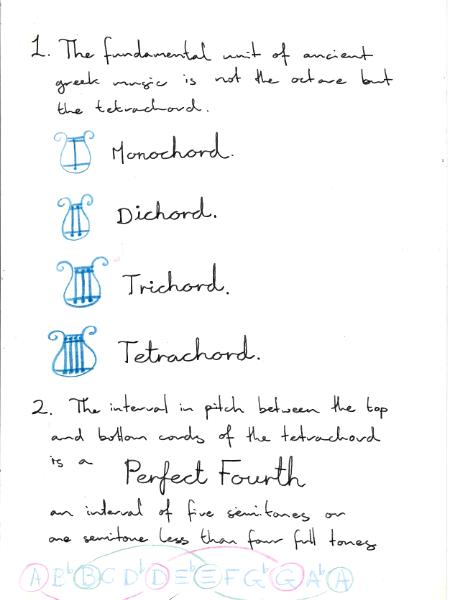 1. The fundamental unit of ancient
greek music is not the octave but
the tetrachord.
Monochord.
Dichord.
Trichord.
Tetrachord.
2. The interval in pitch between the top
and bottom cords of the tetrachord
is a Perfect Fourth
an interval of five semitones or
one semitone less than four full tones
A B♭ B C D♭ D E♭ E F G♭ G A♭ A